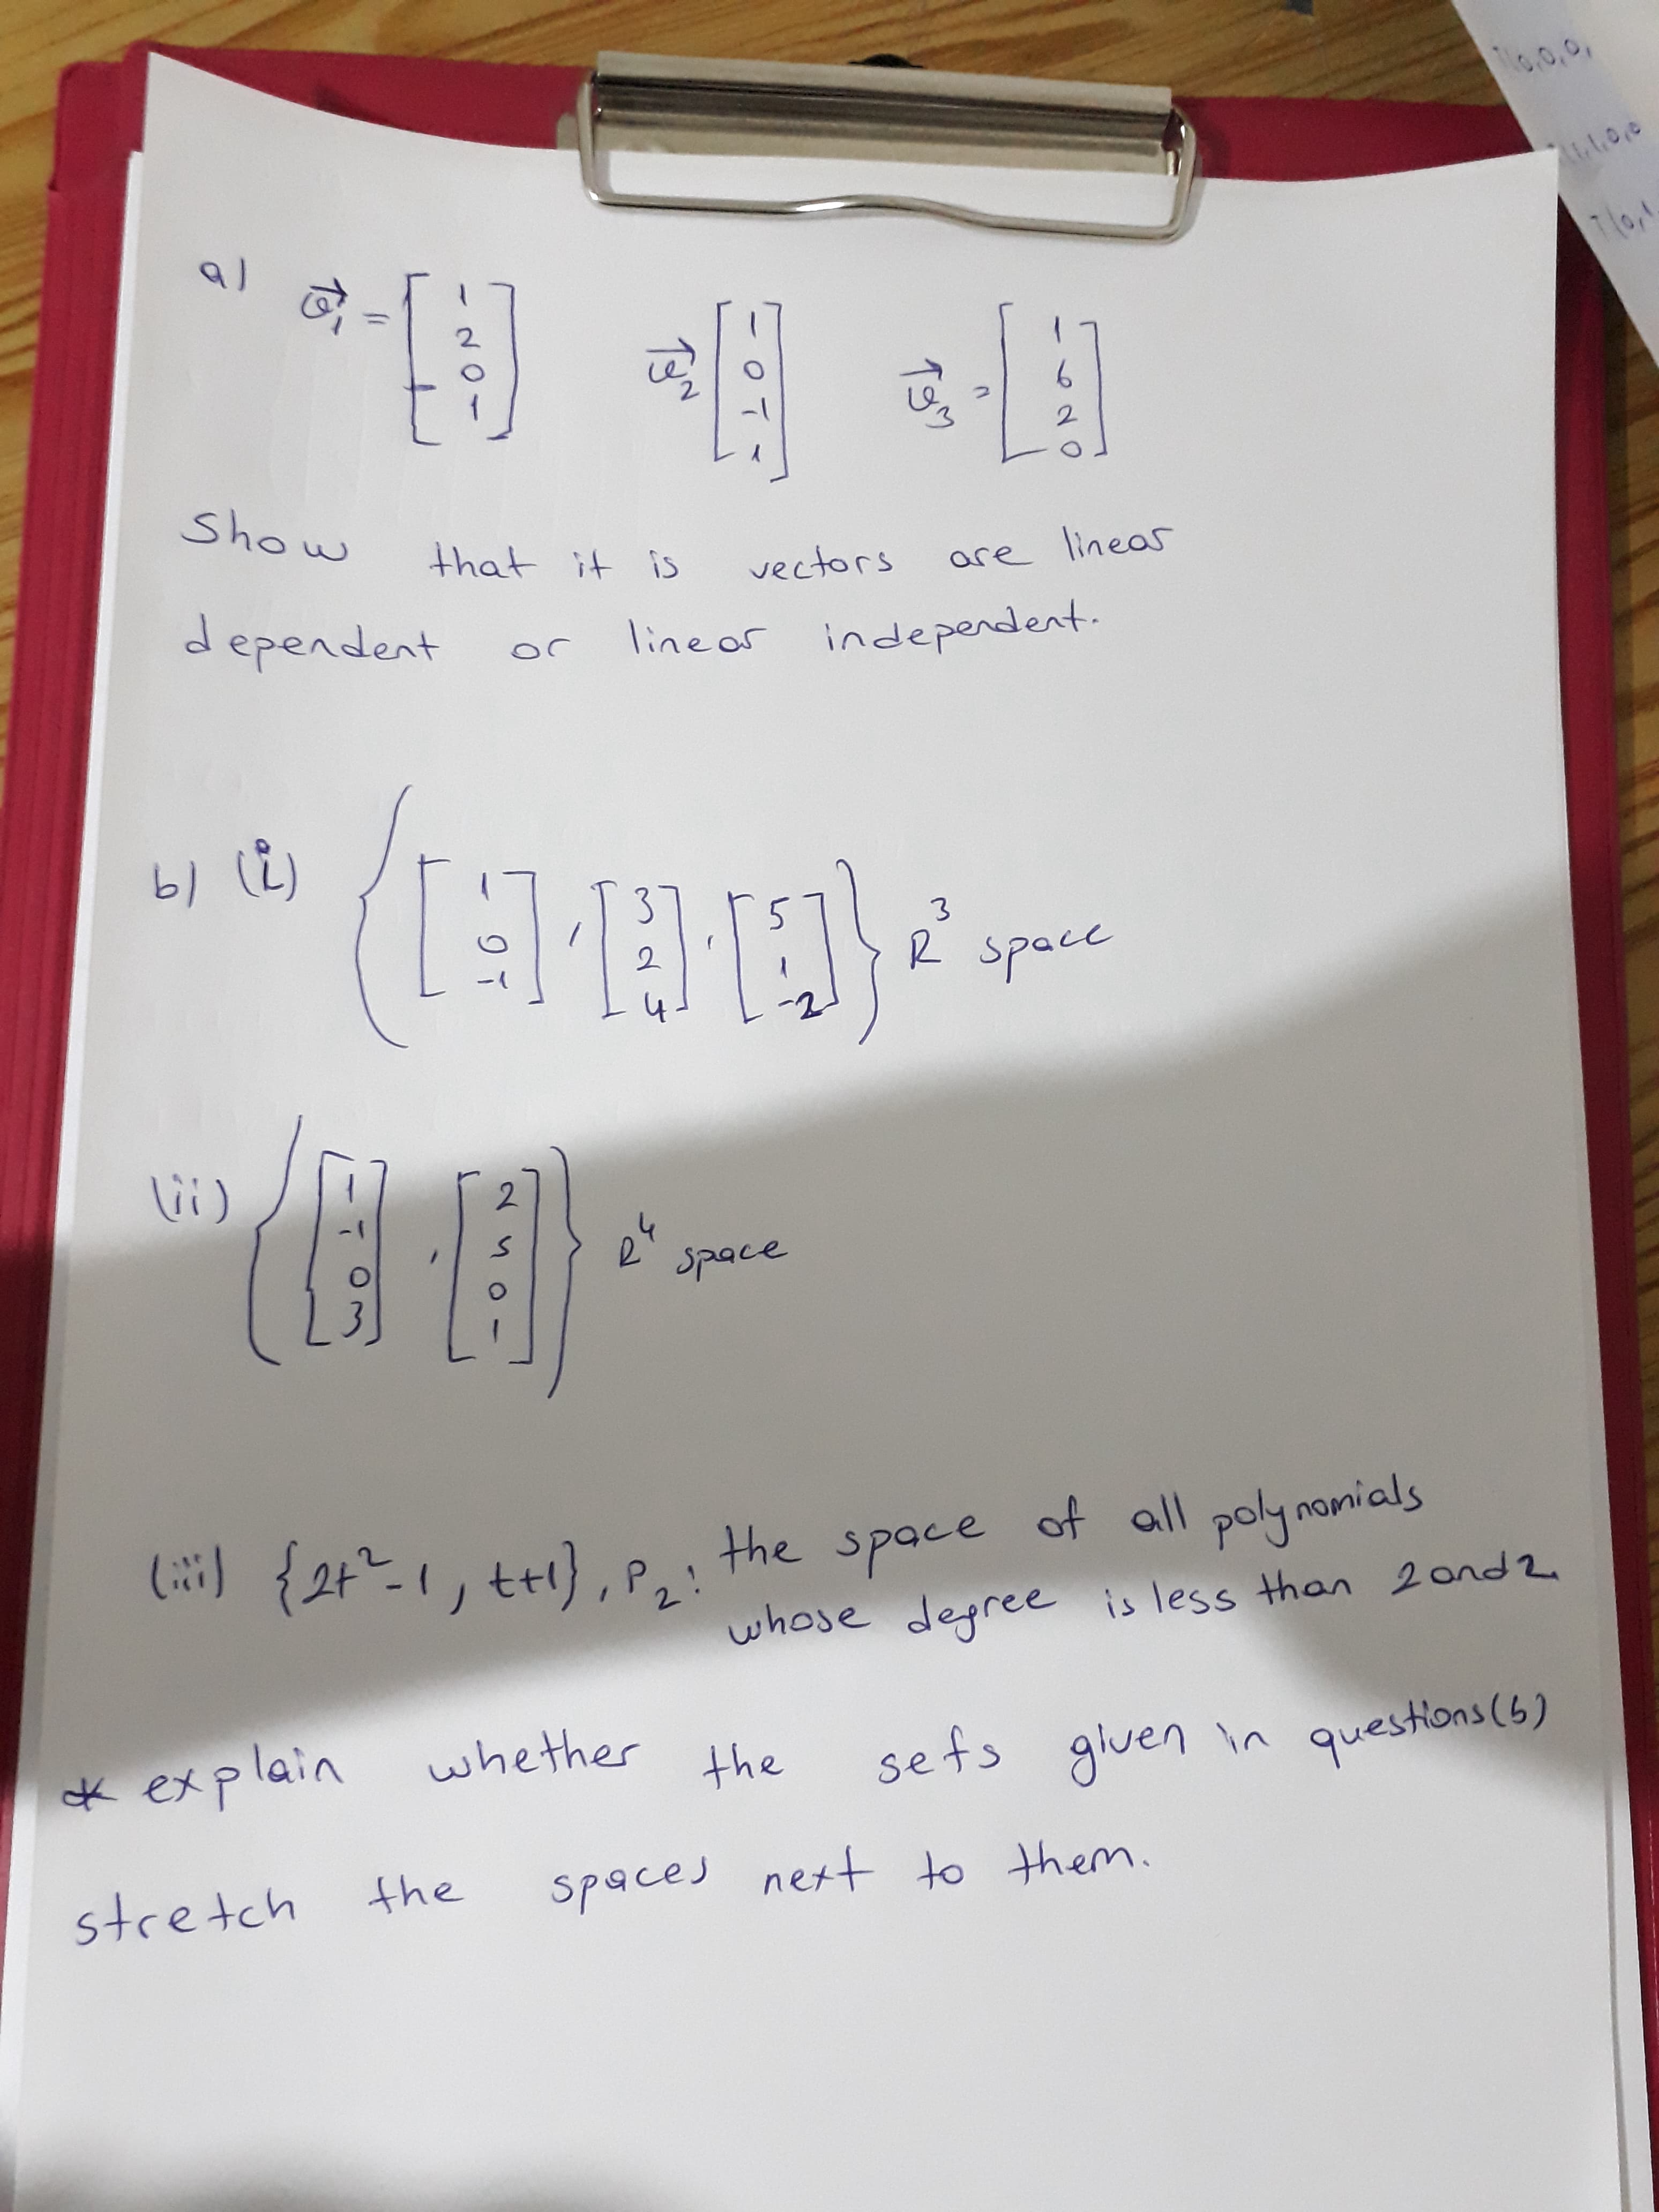 a) v⃗₁ = [1 2 0 1] v⃗₂ [1 0 -1 1] v⃗₃ = [1 6 2 0]
Show that it is vectors are linear
dependent or linear independent.
b) (i) {[1 0 -1], [3 2 4], [5 1 -2]} R³ space
(ii) {[1 -1 0 3], [2 5 0 1]} R⁴ space
(iii) {2t²-1, t+1}, P₂: the space of all polynomials
whose degree is less than 2 and 2.
* explain whether the sets given in questions (b)
stretch the spaces next to them.
T(0,0,0,
1,1,0,0
T(0,1,